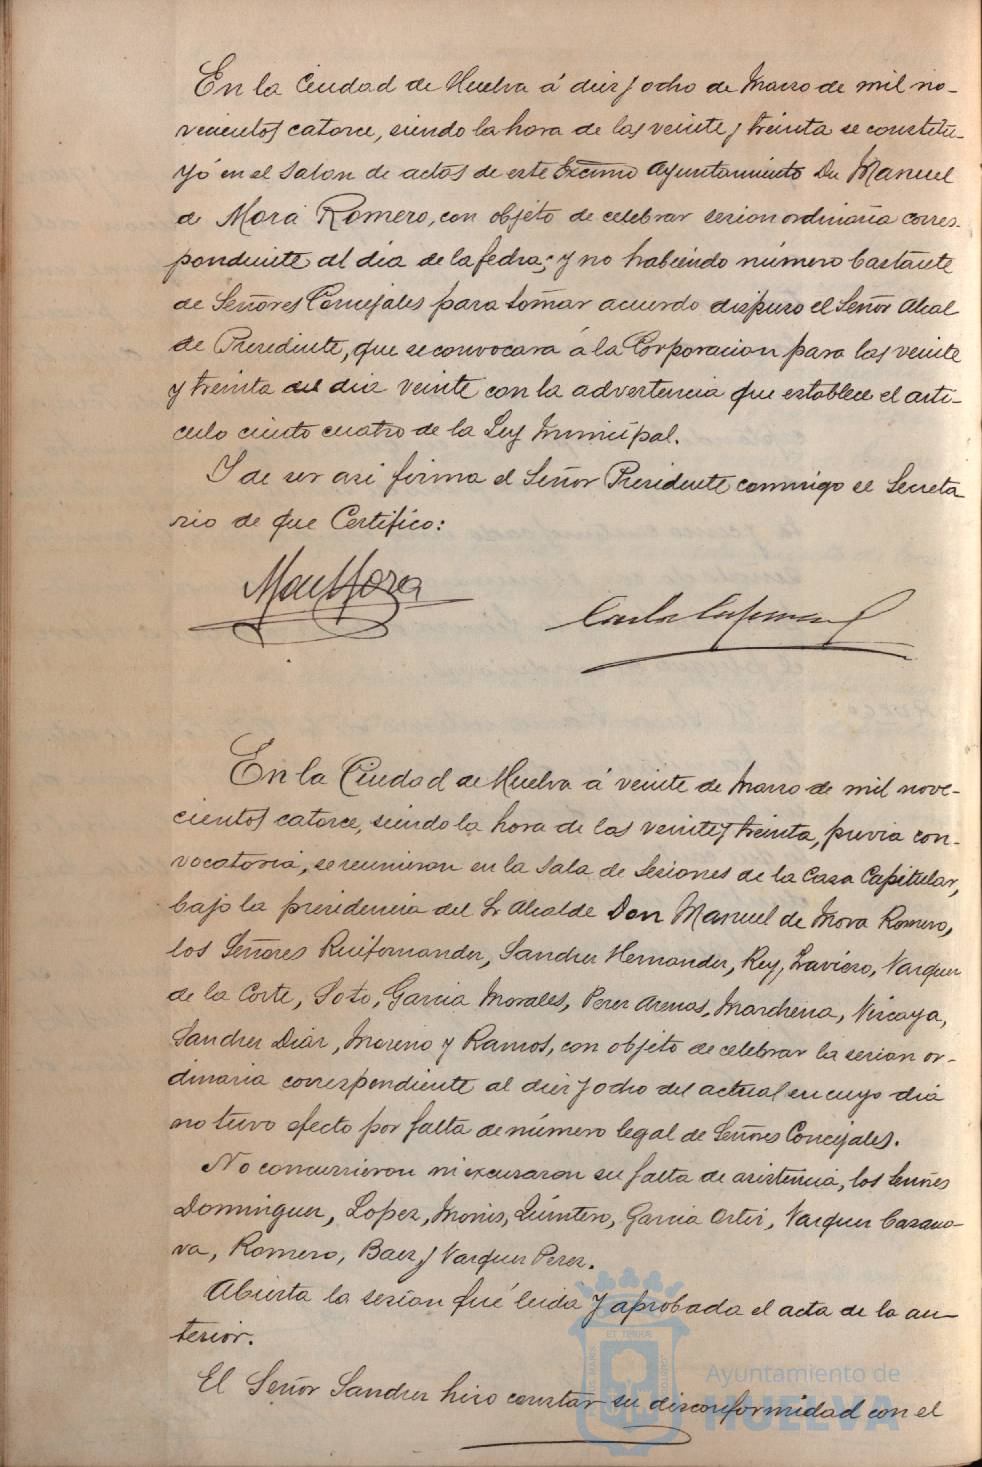 En la Ciudad de Huelva á diez y ocho de Marzo de mil no-
vecientos catorce, siendo la hora de las veinte y treinta se constitu-
yó en el Salon de actos de este Excmo Ayuntamiento Dn Manuel
de Mora Romero, con objeto de celebrar sesion ordinaria corres-
pondiente al dia de la fecha; y no habiendo número bastante
de Señores Concejales para tomar acuerdo dispuso el Señor Alcal
de Presidente, que se convocara á la Corporacion para las veinte
y treinta del dia veinte con la advertencia que establece el arti-
culo ciento cuatro de la Ley Municipal.
Y de ser asi firma el Señor Presidente conmigo el Secreta
rio de que Certifico:
Man Mora
En la Ciudad de Huelva á veinte de Marzo de mil nove-
cientos catorce, siendo la hora de las veinte y treinta, previa con-
vocatoria, se reunieron en la Sala de Sesiones de la Casa Capitular,
bajo la presidencia del Sr Alcalde Don Manuel de Mora Romero,
los Señores Ruifernandez, Sanchez Hernandez, Rey, Traviezo, Vazquez
de la Corte, Soto, Garcia Morales, Perez Arenas, Marchena, Vizcaya,
Sanchez Diaz, Moreno y Ramos, con objeto de celebrar la sesion or-
dinaria correspondiente al diez y ocho del actual en cuyo dia
no tuvo efecto por falta de número legal de Señores Concejales.
No concurrieron ni excusaron su falta de asistencia, los Señores
Dominguez, Lopez, Monis, Quintero, Garcia Ortiz, Vazquez Casano-
va, Romero, Baez y Vazquez Perez.
Abierta la sesion fué leida y aprobada el acta de la an-
terior.
El Señor Sanchez hizo constar su disconformidad con el
Ayuntamiento de
HUELVA